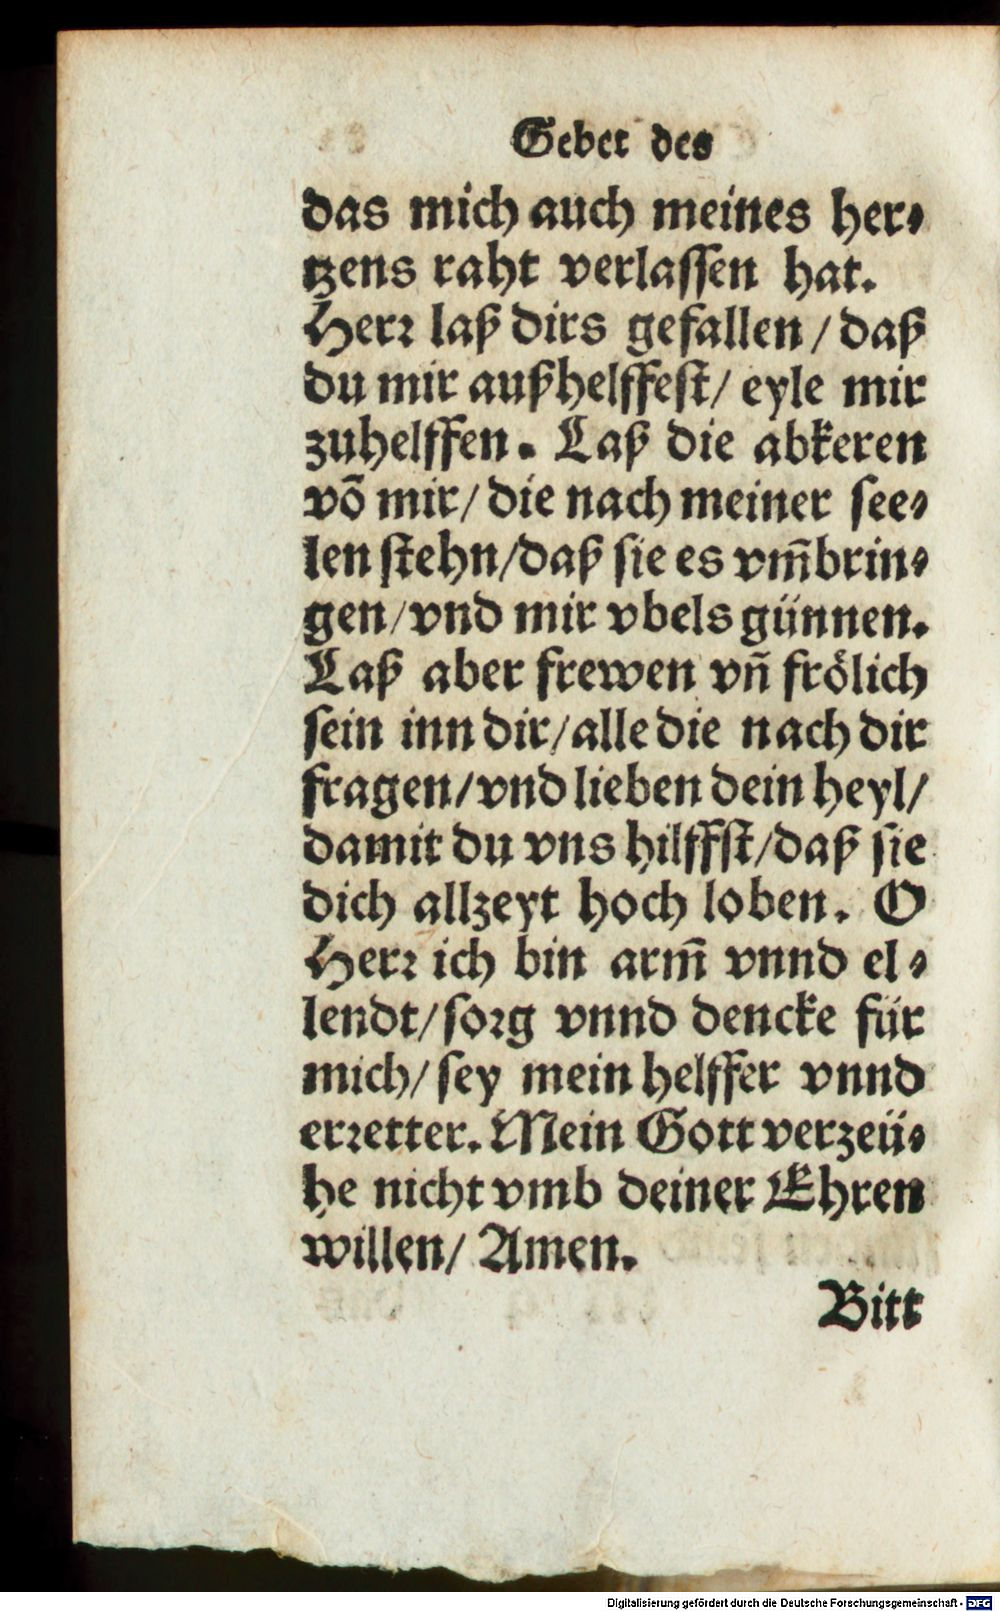 Gebet des
das mich auch meines her⸗
tzens raht verlassen hat.
Herr laß dirs gefallen / daß
du mir außhelffest / eyle mir
zuhelffen. Laß die abkeren
võ mir / die nach meiner see⸗
len stehn / daß sie es vm̃brin⸗
gen / vnd mir vbels günnen.
Laß aber frewen vñ frölich
sein inn dir / alle die nach dir
fragen / vnd lieben dein heyl /
damit du vns hilffst / daß sie
dich allzeyt hoch loben. O
Herr ich bin arm̃ vnnd el⸗
lendt / sorg vnnd dencke für
mich / sey mein helffer vnnd
erretter. Mein Gott verzeü⸗
he nicht vmb deiner Ehren
willen / Amen.
Bitt
Digitalisierung gefördert durch die Deutsche Forschungsgemeinschaft - DFG